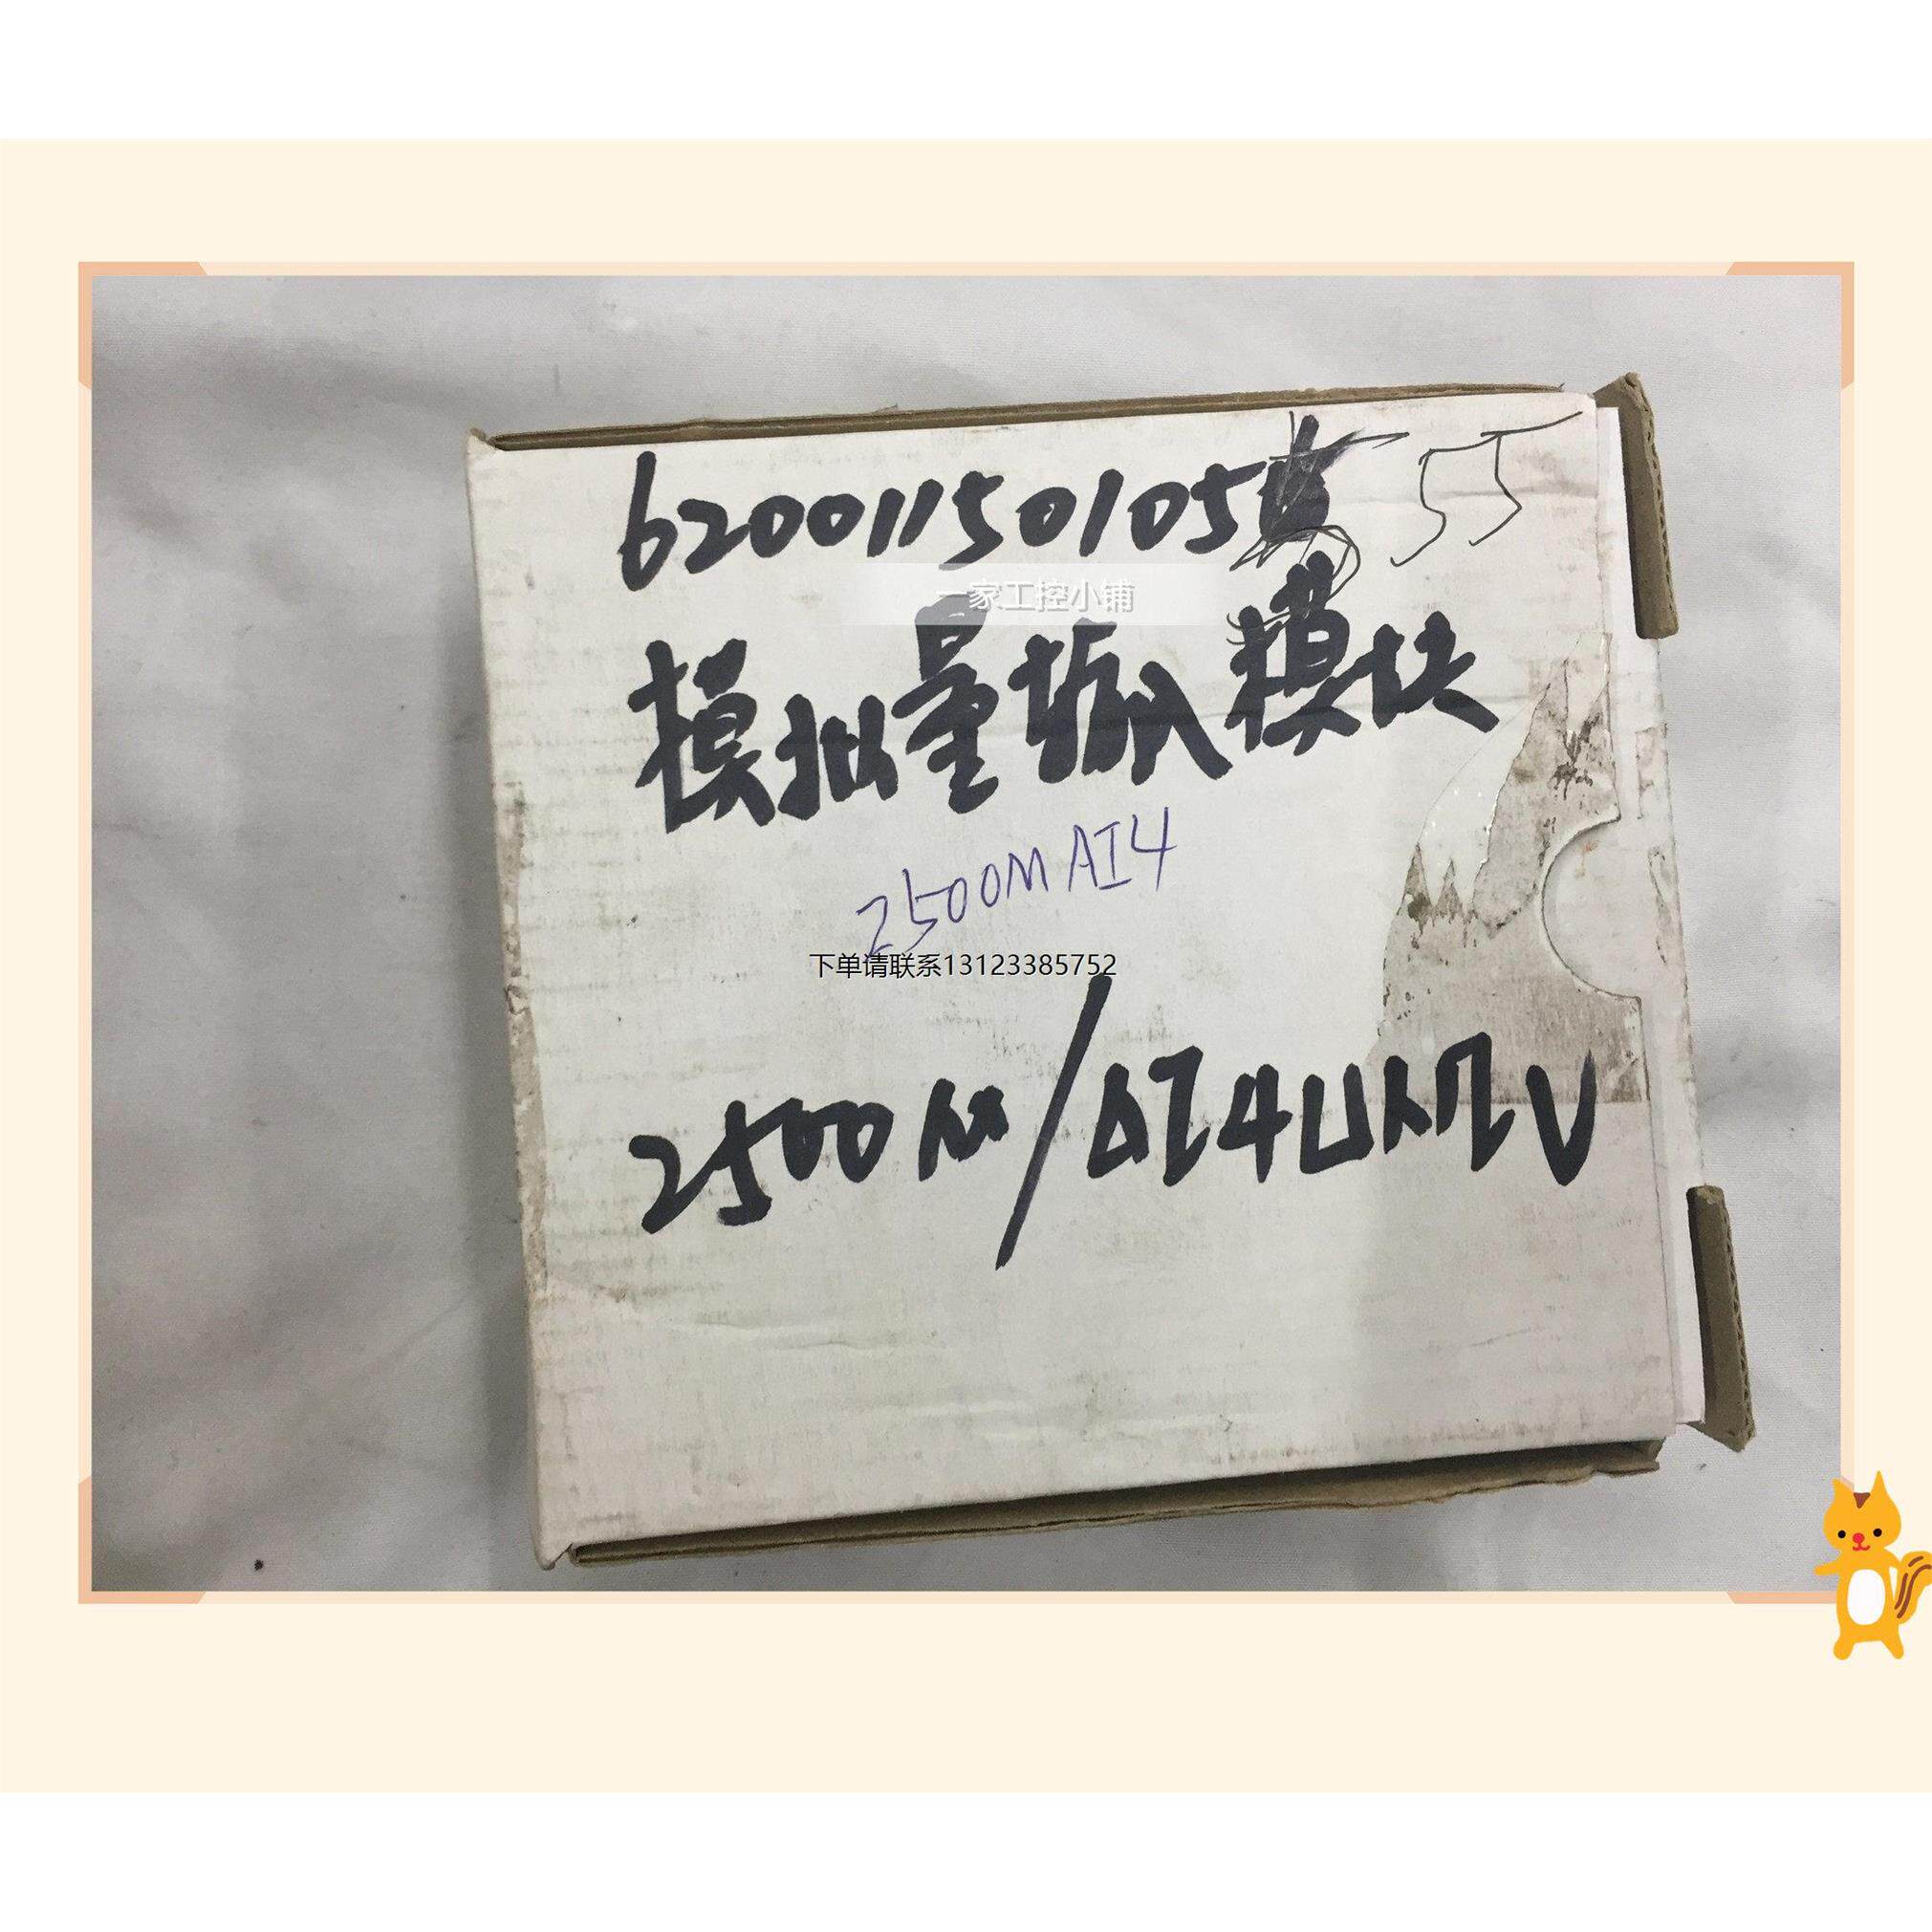 620011501055 55
一家工控小铺
模拟量输入模块
2500M AI4
下单请联系13123385752
2500M/AI4UNIV